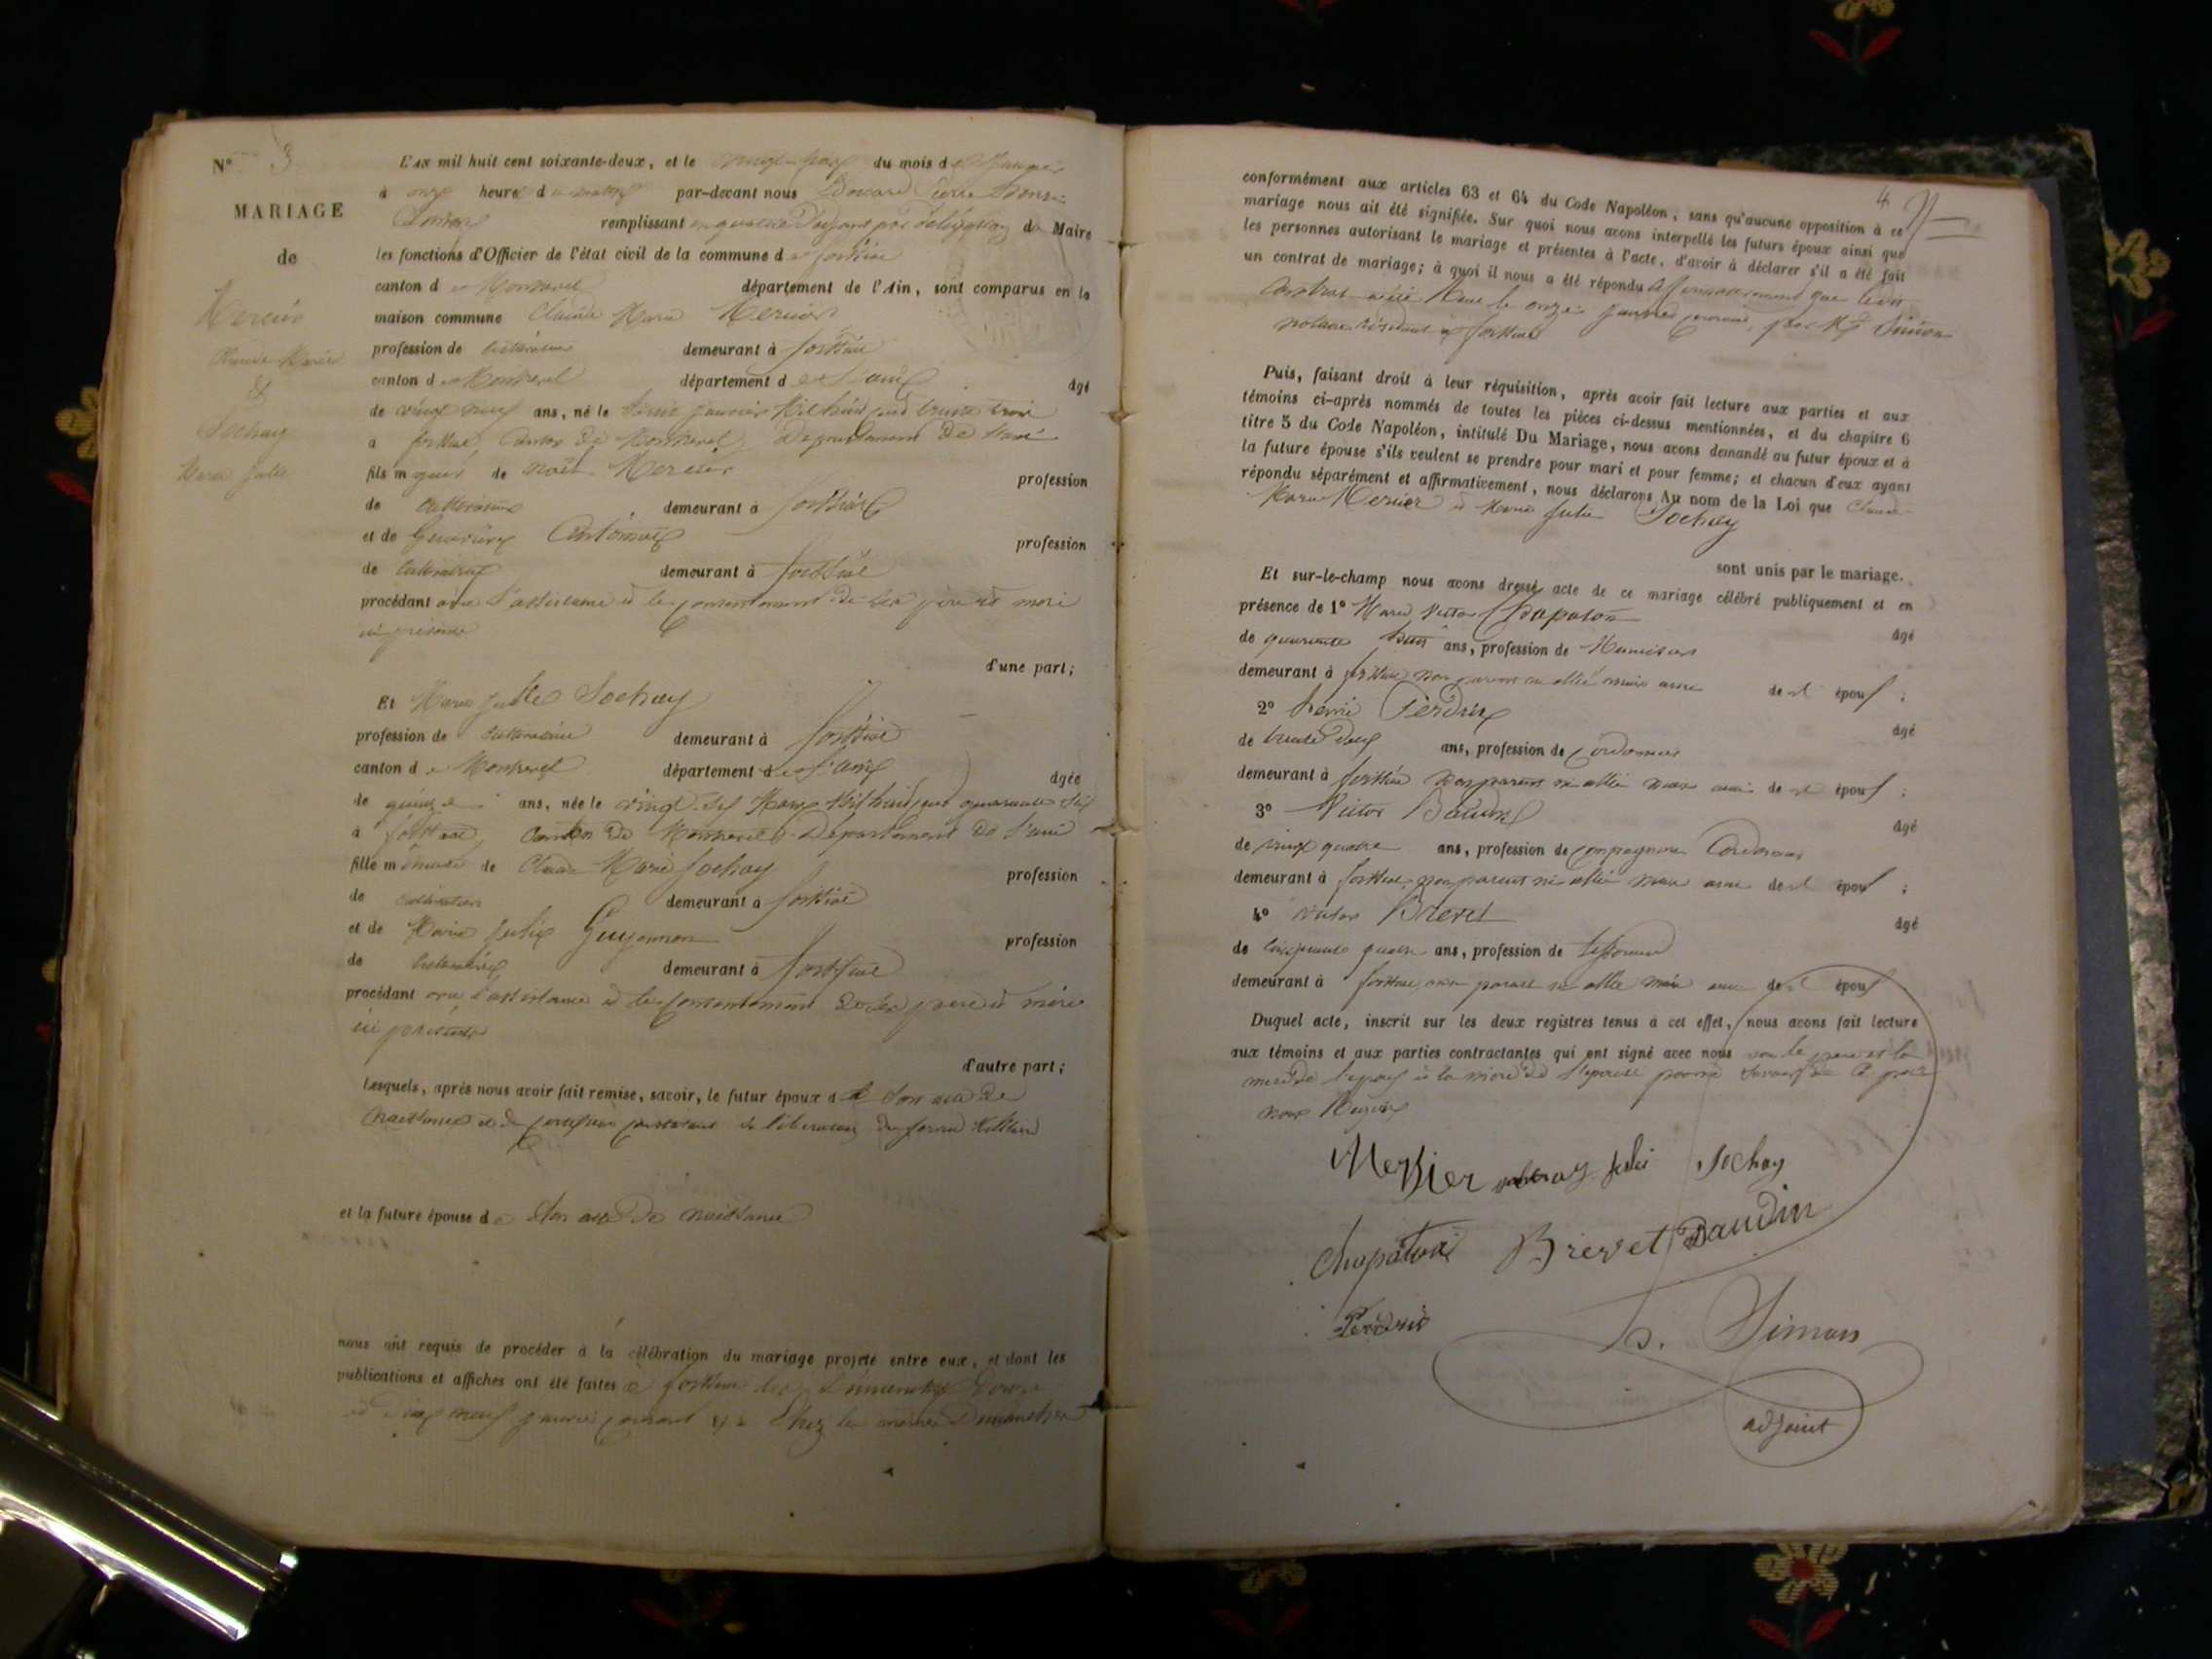 N° 3
MARIAGE
de
Mercier
Claude Marie
&
Sochay
Marie Julie
L'AN mil huit cent soixante-deux, et le vingt du mois de Janvier
à onze heures du matin par-devant nous Pierre
remplissant en qualité d'adjoint par délégation du Maire
les fonctions d'Officier de l'état civil de la commune de foissiat
canton de Montrevel département de l'Ain, sont comparus en la
maison commune Claude Marie Mercier
profession de cultivateur demeurant à foissiat
canton de Montrevel département de l'ain âgé
de vingt neuf ans, né le janvier Mil huit cent trente trois
à foissiat Canton de Montrevel Département de l'ain
fils majeur de Mercier profession
de cultivateur demeurant à foissiat
et de profession
de cultivatrice demeurant à foissiat
procédant avec l'assistance et le consentement de ses père et mère
ici présents
d'une part;
Et Marie Julie Sochay
profession de cultivatrice demeurant à foissiat
canton de Montrevel département de l'ain âgée
de quinze ans, née le vingt Mars Mil huit cent quarante six
à foissiat, Canton de Montrevel Département de l'ain
fille mineure de Claude Marie Sochay profession
de cultivateur demeurant à foissiat
et de Marie Julie Guyonnon profession
de cultivatrice demeurant à foissiat
procédant avec l'assistance et le consentement de ses père et mère
ici présents
d'autre part;
Lesquels, après nous avoir fait remise, savoir, le futur époux de son acte de
naissance et de
et la future épouse de son acte de naissance
nous ont requis de procéder à la célébration du mariage projeté entre eux, et dont les
publications et affiches ont été faites à foissiat les Dimanches Douze
et dix neuf janvier courant
4
conformément aux articles 63 et 64 du Code Napoléon, sans qu'aucune opposition à ce
mariage nous ait été signifiée. Sur quoi nous avons interpellé les futurs époux ainsi que
les personnes autorisant le mariage et présentes à l'acte, d'avoir à déclarer s'il a été fait
un contrat de mariage; à quoi il nous a été répondu affirmativement que ledit
Contrat a été reçu le onze janvier courant, par Me Simon
notaire résidant à foissiat
Puis, faisant droit à leur réquisition, après avoir fait lecture aux parties et aux
témoins ci-après nommés de toutes les pièces ci-dessus mentionnées, et du chapitre 6
titre 5 du Code Napoléon, intitulé Du Mariage, nous avons demandé au futur époux et à
la future épouse s'ils veulent se prendre pour mari et pour femme; et chacun d'eux ayant
répondu séparément et affirmativement, nous déclarons Au nom de la Loi que Claude
Marie Mercier et Marie Julie Sochay
sont unis par le mariage.
Et sur-le-champ nous avons dressé acte de ce mariage célébré publiquement et en
présence de 1° Marie Victor Chapaton âgé
de quarante huit ans, profession de Menuisier
demeurant à foissiat non parent ni allié mais ami de l' époux;
2° Perdrix âgé
de trente deux ans, profession de Cordonnier
demeurant à foissiat non parent ni allié mais ami de l' époux;
3° Victor Baudin âgé
de vingt quatre ans, profession de compagnon Cordonnier
demeurant à foissiat, non parent ni allié mais ami de l' époux;
4° Victor Brevet âgé
de cinquante quatre ans, profession de
demeurant à foissiat, non parent ni allié mais ami de l' époux
Duquel acte, inscrit sur les deux registres tenus à cet effet, nous avons fait lecture
aux témoins et aux parties contractantes qui ont signé avec nous non le père et la
mère de l'époux et la mère de l'épouse pour ne savoir de ce par
nous Requis
Mercier Julie Sochay
Chapaton Brevet Baudin
Perdrix D. Simon
adjoint